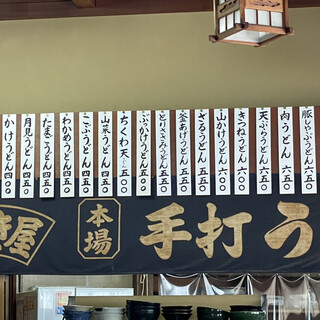 豚しゃぶうどん 六五〇
肉うどん 六五〇
天ぷらうどん 六五〇
きつねうどん 六〇〇
山かけうどん 六〇〇
ざるうどん 五五〇
釜あげうどん 五五〇
ぶっかけうどん 五五〇
ちくわ天 五五〇
山菜うどん 四五〇
こぶうどん 四五〇
わかめうどん 四五〇
たまごうどん 四五〇
月見うどん 四五〇
かけうどん 四〇〇
屋
本場
手打う